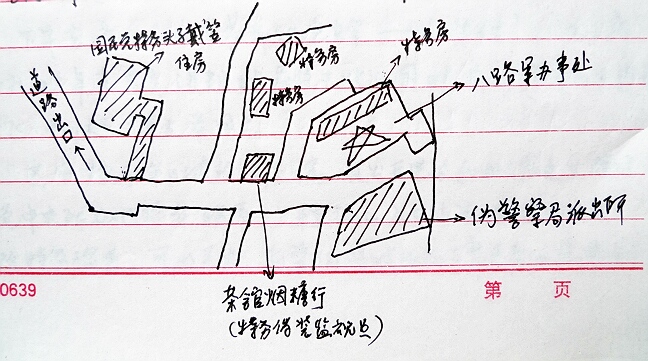 国民党特务头子戴笠
住房
道路出口
特务房
特务房
特务房
八路军办事处
伪警察局派出所
茶馆烟糖行
(特务伪装监视点)
0639
第 页